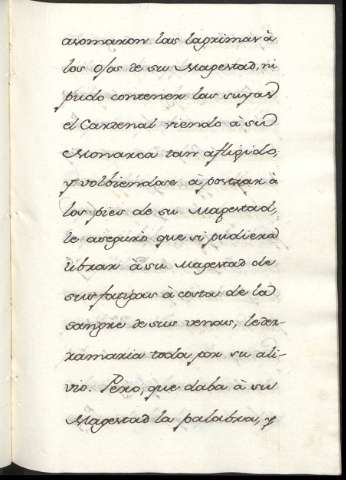 asomaron las lagrimas à
los Ojos de su Magestad, ni
pudo contener las suyas
el Cardenal viendo à su
Monarca tan afligido,
y volbiendose à postrar à
los pies de su Magestad,
le aseguro que si pudiera
librar à su Magestad de
sus fatigas à costa de la
sangre de sus venas, leder-
ramaria toda por su ali-
vio. Pero, que daba à su
Magestad la palabra, y